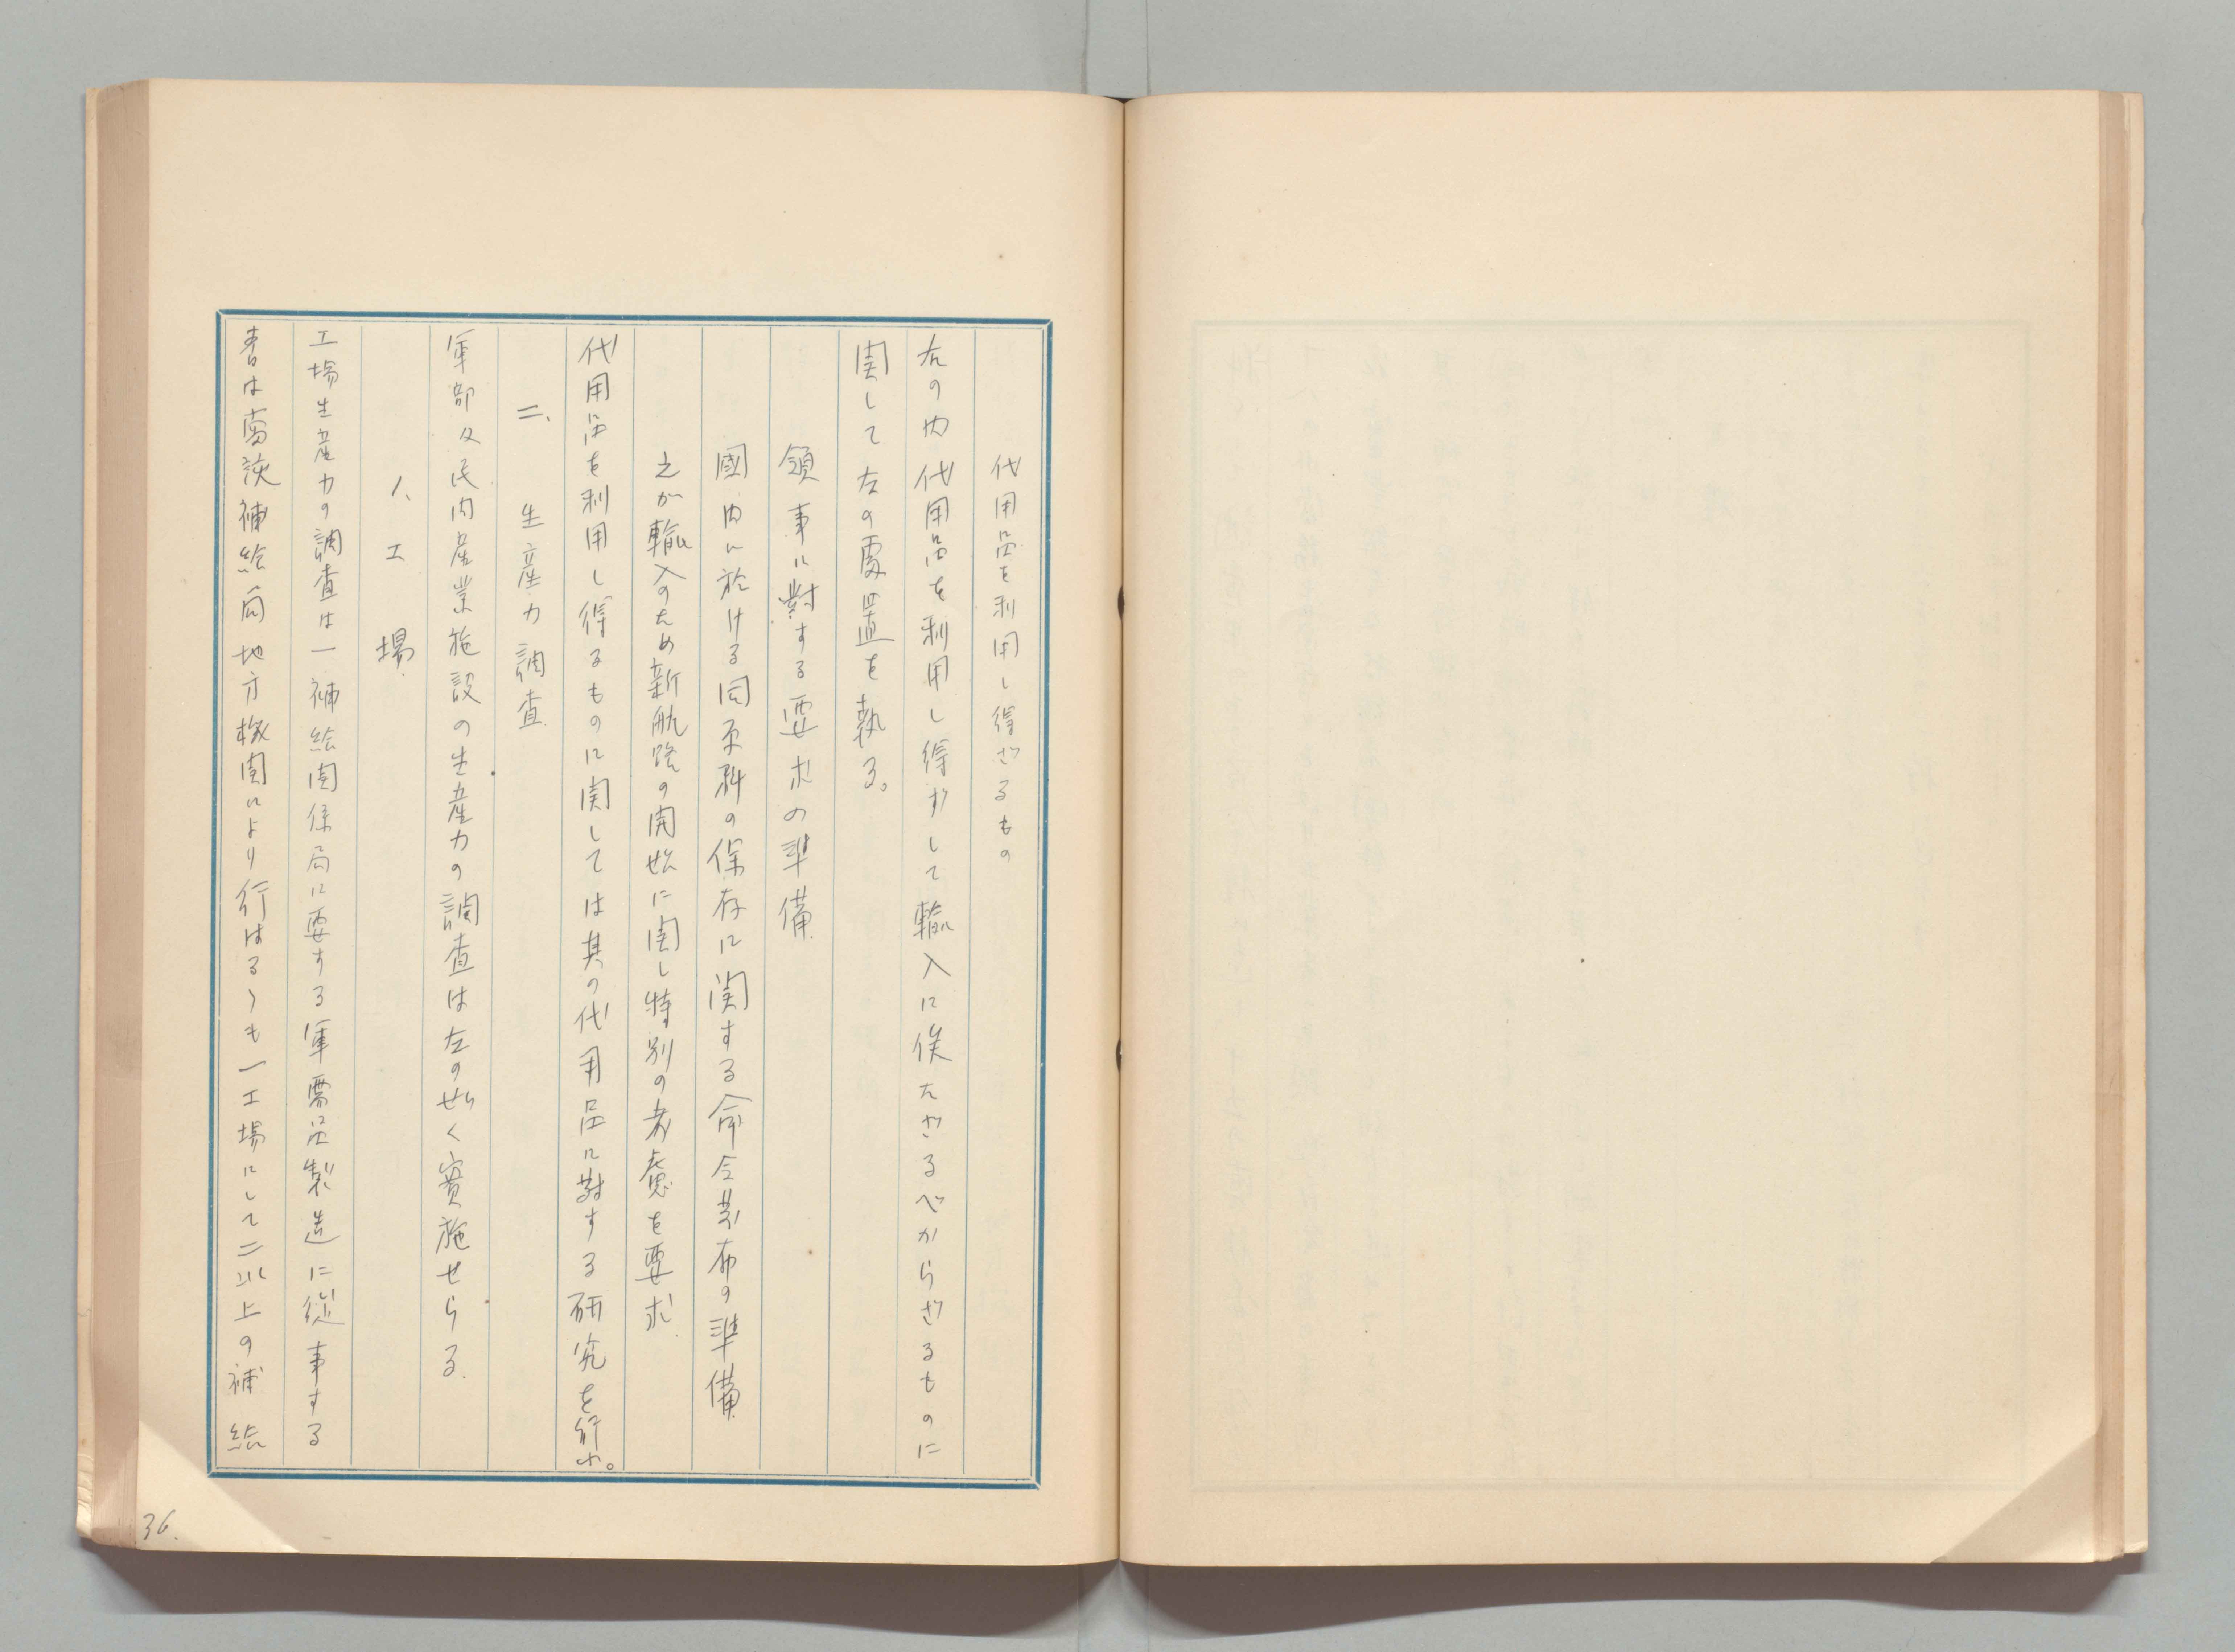 代用品を利用し得ざるもの
右の内代用品を利用し得ずして輸入に俟たざるべからざるものに
関して左の處置を執る。
領事に對する要求の準備
國内に於ける同原料の保存に関する命令発布の準備
之が輸入のため新航路の開始に関し特別の考慮を要求
代用品を利用し得るものに関しては其の代用品に對する研究を行ふ。
二、生産力調査
軍部及民間産業施設の生産力の調査は左の如く實施せらる.
1、工場
工場生産力の調査は一補給関係局に要する軍需品製造に從事する
者は當該補給局地方機関により行はるゝも一工場にして二以上の補給
36.